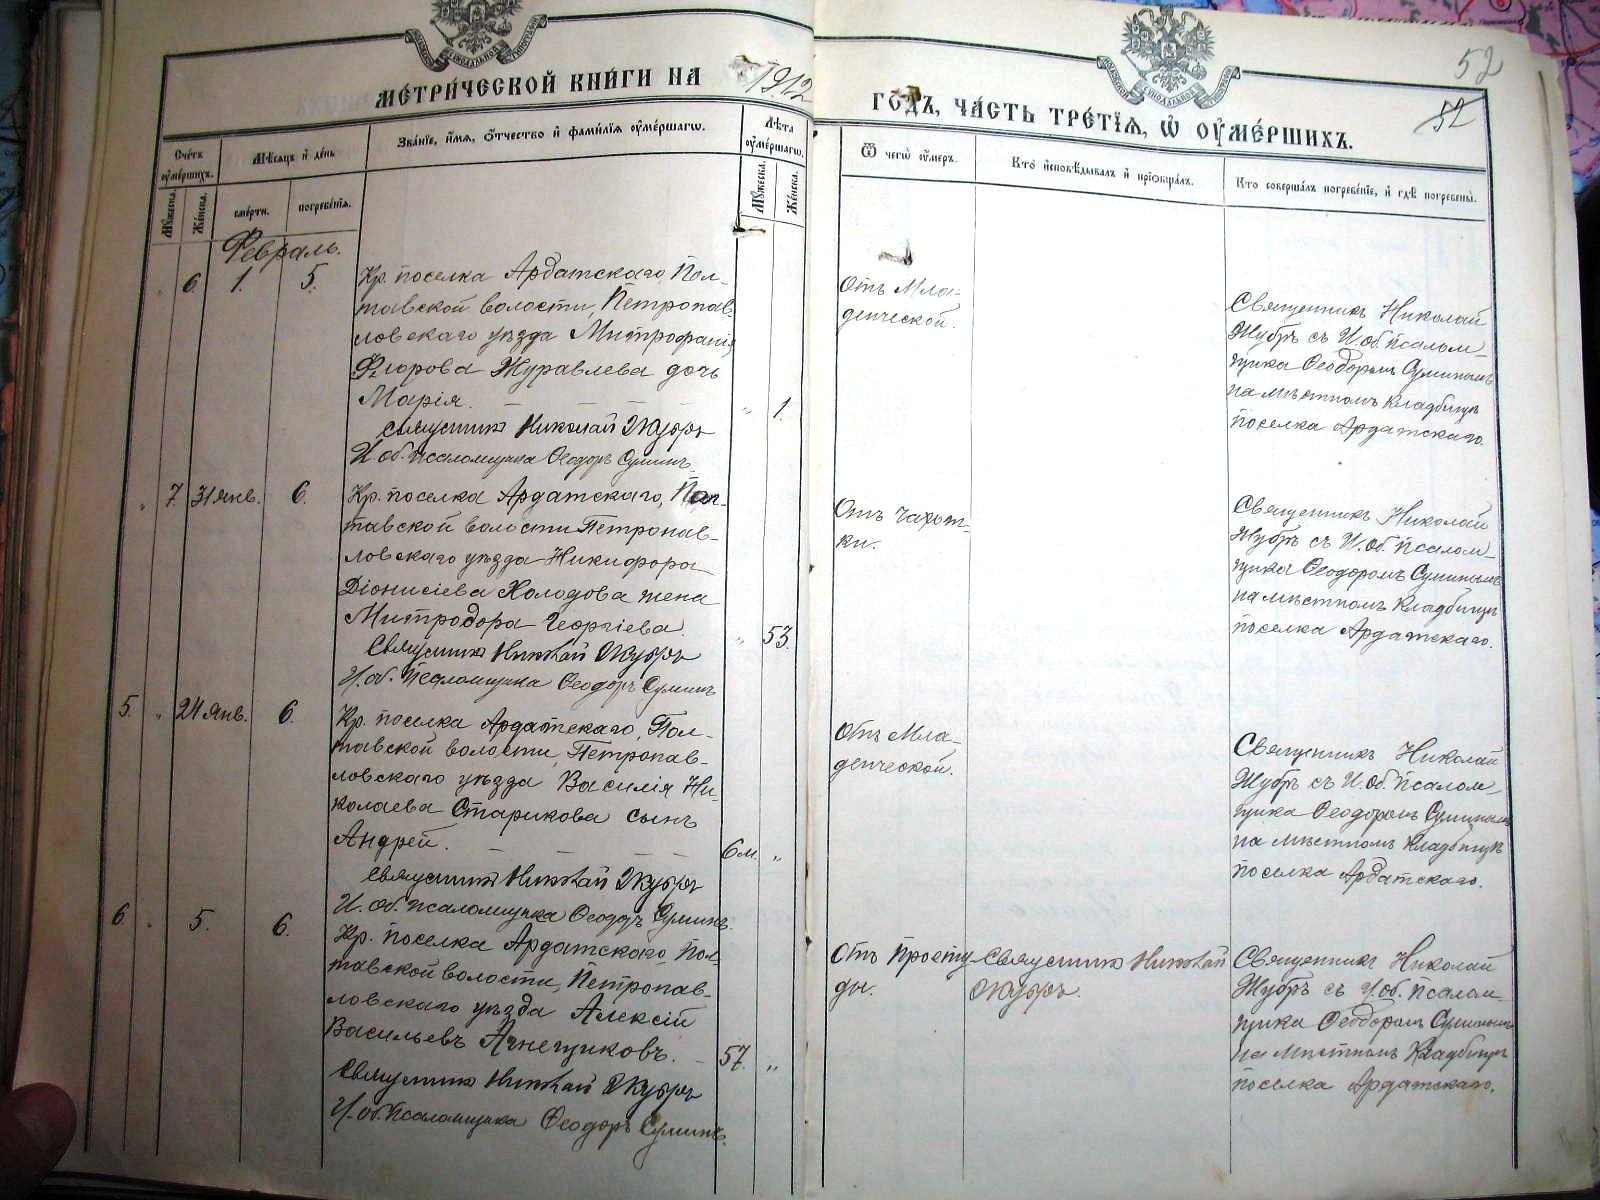 МЕТРИ́ЧЕСКОЙ КНИ́ГИ НА 1912
ГО́ДЪ, ЧА́СТЬ ТРЕ́ТЇѦ, Ѡ҆ ОУ҆МЕ́РШИХЪ.
52
52
Сче́тъ оу҆ме́ршихъ.
Мѣ́сѧцъ и҆ де́нь
Зва́нїе, и҆́мѧ, ѻ҆́тчество и҆ фами́лїѧ оу҆ме́ршагѡ.
Лѣ́та оу҆ме́ршагѡ.
Мꙋ́жеска.
Же́нска.
сме́рти.
погребе́нїѧ.
Мꙋ́жеска.
Же́нска.
Ѿ чегѡ̀ оу҆́меръ.
Кто̀ и҆сповѣ́дывалъ и҆ прїѡбща́лъ.
Кто соверша́лъ погребе́нїе, и҆ гдѣ̀ погребены̀.
Февраль.
6. 1. 5.
Кр. поселка Ардатскаго, Пол-
тавской волости, Петропав-
ловскаго уѣзда Митрофанія
Флорова Журавлева дочь
Марія. — — —
" 1.
Священникъ Николай Жубръ
И. об. псаломщика Ѳеодоръ Суминъ.
Отъ Мла-
денческой.
Священникъ Николай
Жубръ съ И. об. псалом-
щика Ѳеодоромъ Суминымъ
на мѣстномъ кладбищѣ
поселка Ардатскаго.
" 7. 31 янв. 6.
Кр. поселка Ардатскаго, Пол-
тавской волости Петропав-
ловскаго уѣзда Никифора
Діонисіева Холодова жена
Митродора Георгіева.
" 53.
Священникъ Николай Жубръ
И. об. Псаломщика Ѳеодоръ Суминъ
Отъ чахот-
ки.
Священникъ Николай
Жубръ съ И. об. псалом-
щика Ѳеодоромъ Суминымъ
на мѣстномъ кладбищѣ
поселка Ардатскаго.
5. " 24 янв. 6.
Кр. поселка Ардатскаго, Пол-
тавской волости, Петропав-
ловскаго уѣзда Василія Ни-
колаева Старикова сынъ
Андрей. — — — —
6 м. "
Священникъ Николай Жубръ
И. об. псаломщика Ѳеодоръ Суминъ.
Отъ Мла-
денческой.
Священникъ Николай
Жубръ съ И. об. псалом-
щика Ѳеодоромъ Суминымъ
на мѣстномъ кладбищѣ
поселка Ардатскаго.
6. " 5. 6.
Кр. поселка Ардатскаго Пол-
тавской волости, Петропав-
ловскаго уѣзда Алексій
Васильевъ Агнещиковъ. —
57. "
Священникъ Николай Жубръ
И. об. Псаломщика Ѳеодоръ Суминъ.
Отъ просту-
ды.
Священникъ Николай
Жубръ.
Священникъ Николай
Жубръ съ И. об. псалом-
щика Ѳеодоромъ Суминымъ
на мѣстномъ кладбищѣ
поселка Ардатскаго.